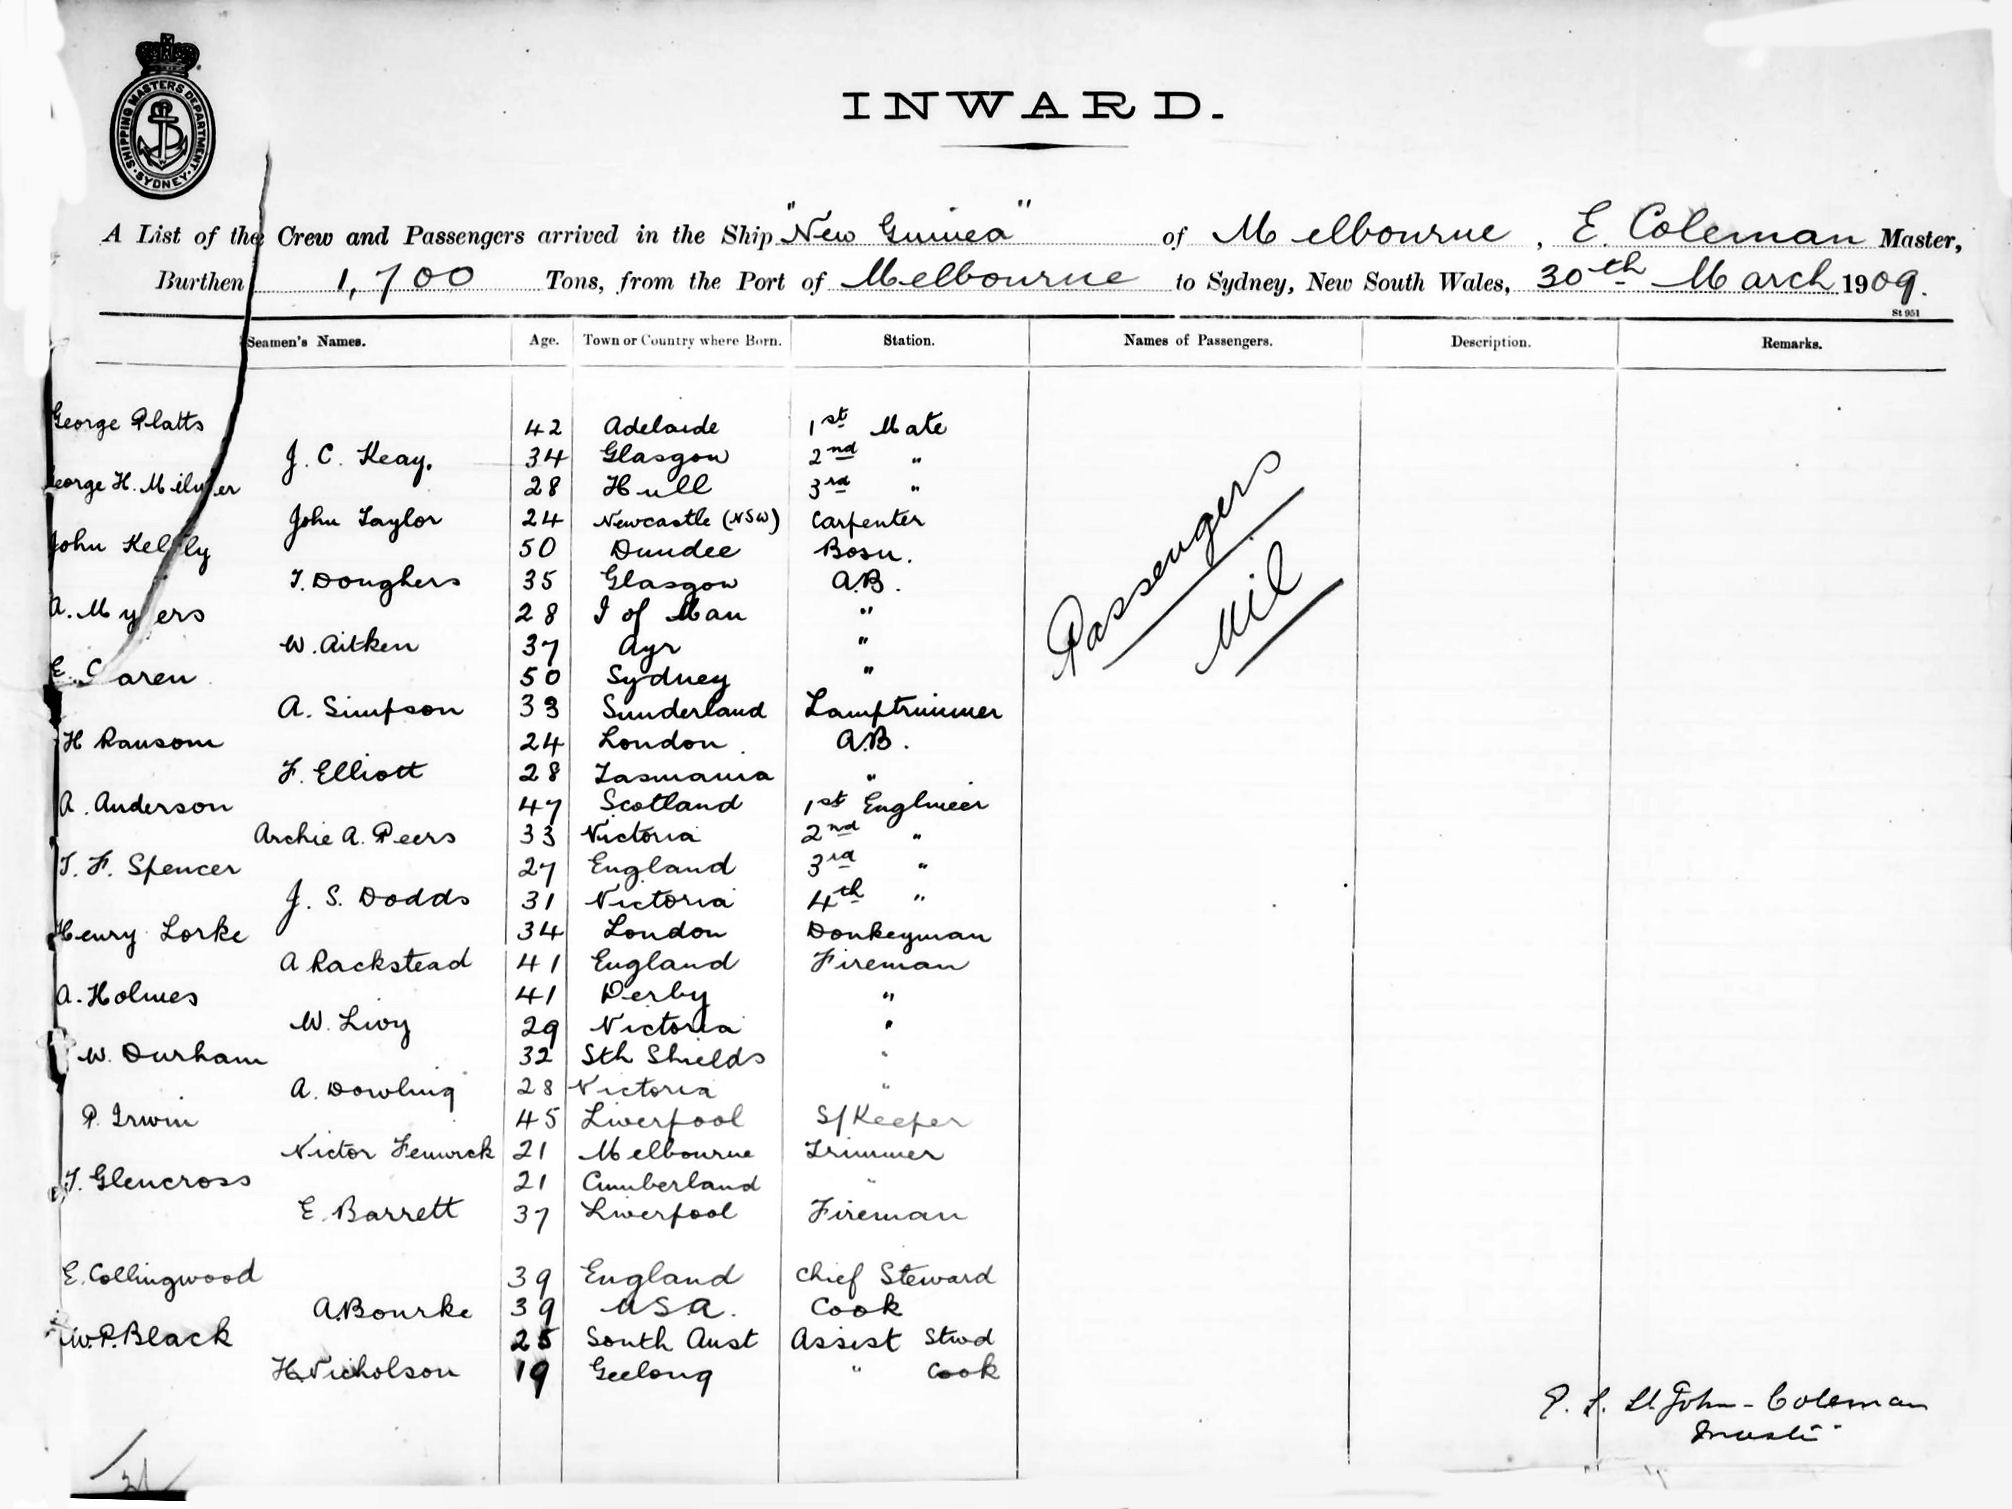 SHIPPING MASTERS DEPARTMENT. SYDNEY.
INWARD.
A List of the Crew and Passengers arrived in the Ship "New Guinea" of Melbourne, E. Coleman Master,
Burthen 1,700 Tons, from the Port of Melbourne to Sydney, New South Wales, 30th March 1909.
St 951
Seamen's Names. Age. Town or Country where Born. Station. Names of Passengers. Description. Remarks.
George Platts 42 Adelaide 1st Mate
J. C. Keay. 34 Glasgow 2nd "
George H. Milner 28 Hull 3rd "
John Taylor 24 Newcastle (NSW) Carpenter
John Kelly 50 Dundee Bosn.
T. Doughers 35 Glasgow A.B.
A. Myers 28 I of Man "
W. Aitken 37 Ayr "
E. Caren 50 Sydney "
A. Simpson 33 Sunderland Lamptrimmer
H Ransom 24 London. A.B.
F. Elliott 28 Tasmania "
A. Anderson 47 Scotland 1st Engineer
Archie A. Peers 33 Victoria 2nd "
T. F. Spencer 27 England 3rd "
J. S. Dodds 31 Victoria 4th "
Henry Lorke 34 London Donkeyman
A Rackstead 41 England Fireman
A. Holmes 41 Derby "
W. Livy 29 Victoria "
W. Durham 32 Sth Shields "
A. Dowling 28 Victoria "
P. Irwin 45 Liverpool S/Keeper
Victor Fenwick 21 Melbourne Trimmer
T. Glencross 21 Cumberland "
E. Barrett 37 Liverpool Fireman
E. Collingwood 39 England Chief Steward
A. Bourke 39 USA. Cook
W. P. Black 25 South Aust Assist Stwd
H. Nicholson 19 Geelong " Cook
Passengers
Nil
St. John-Coleman
Master
31